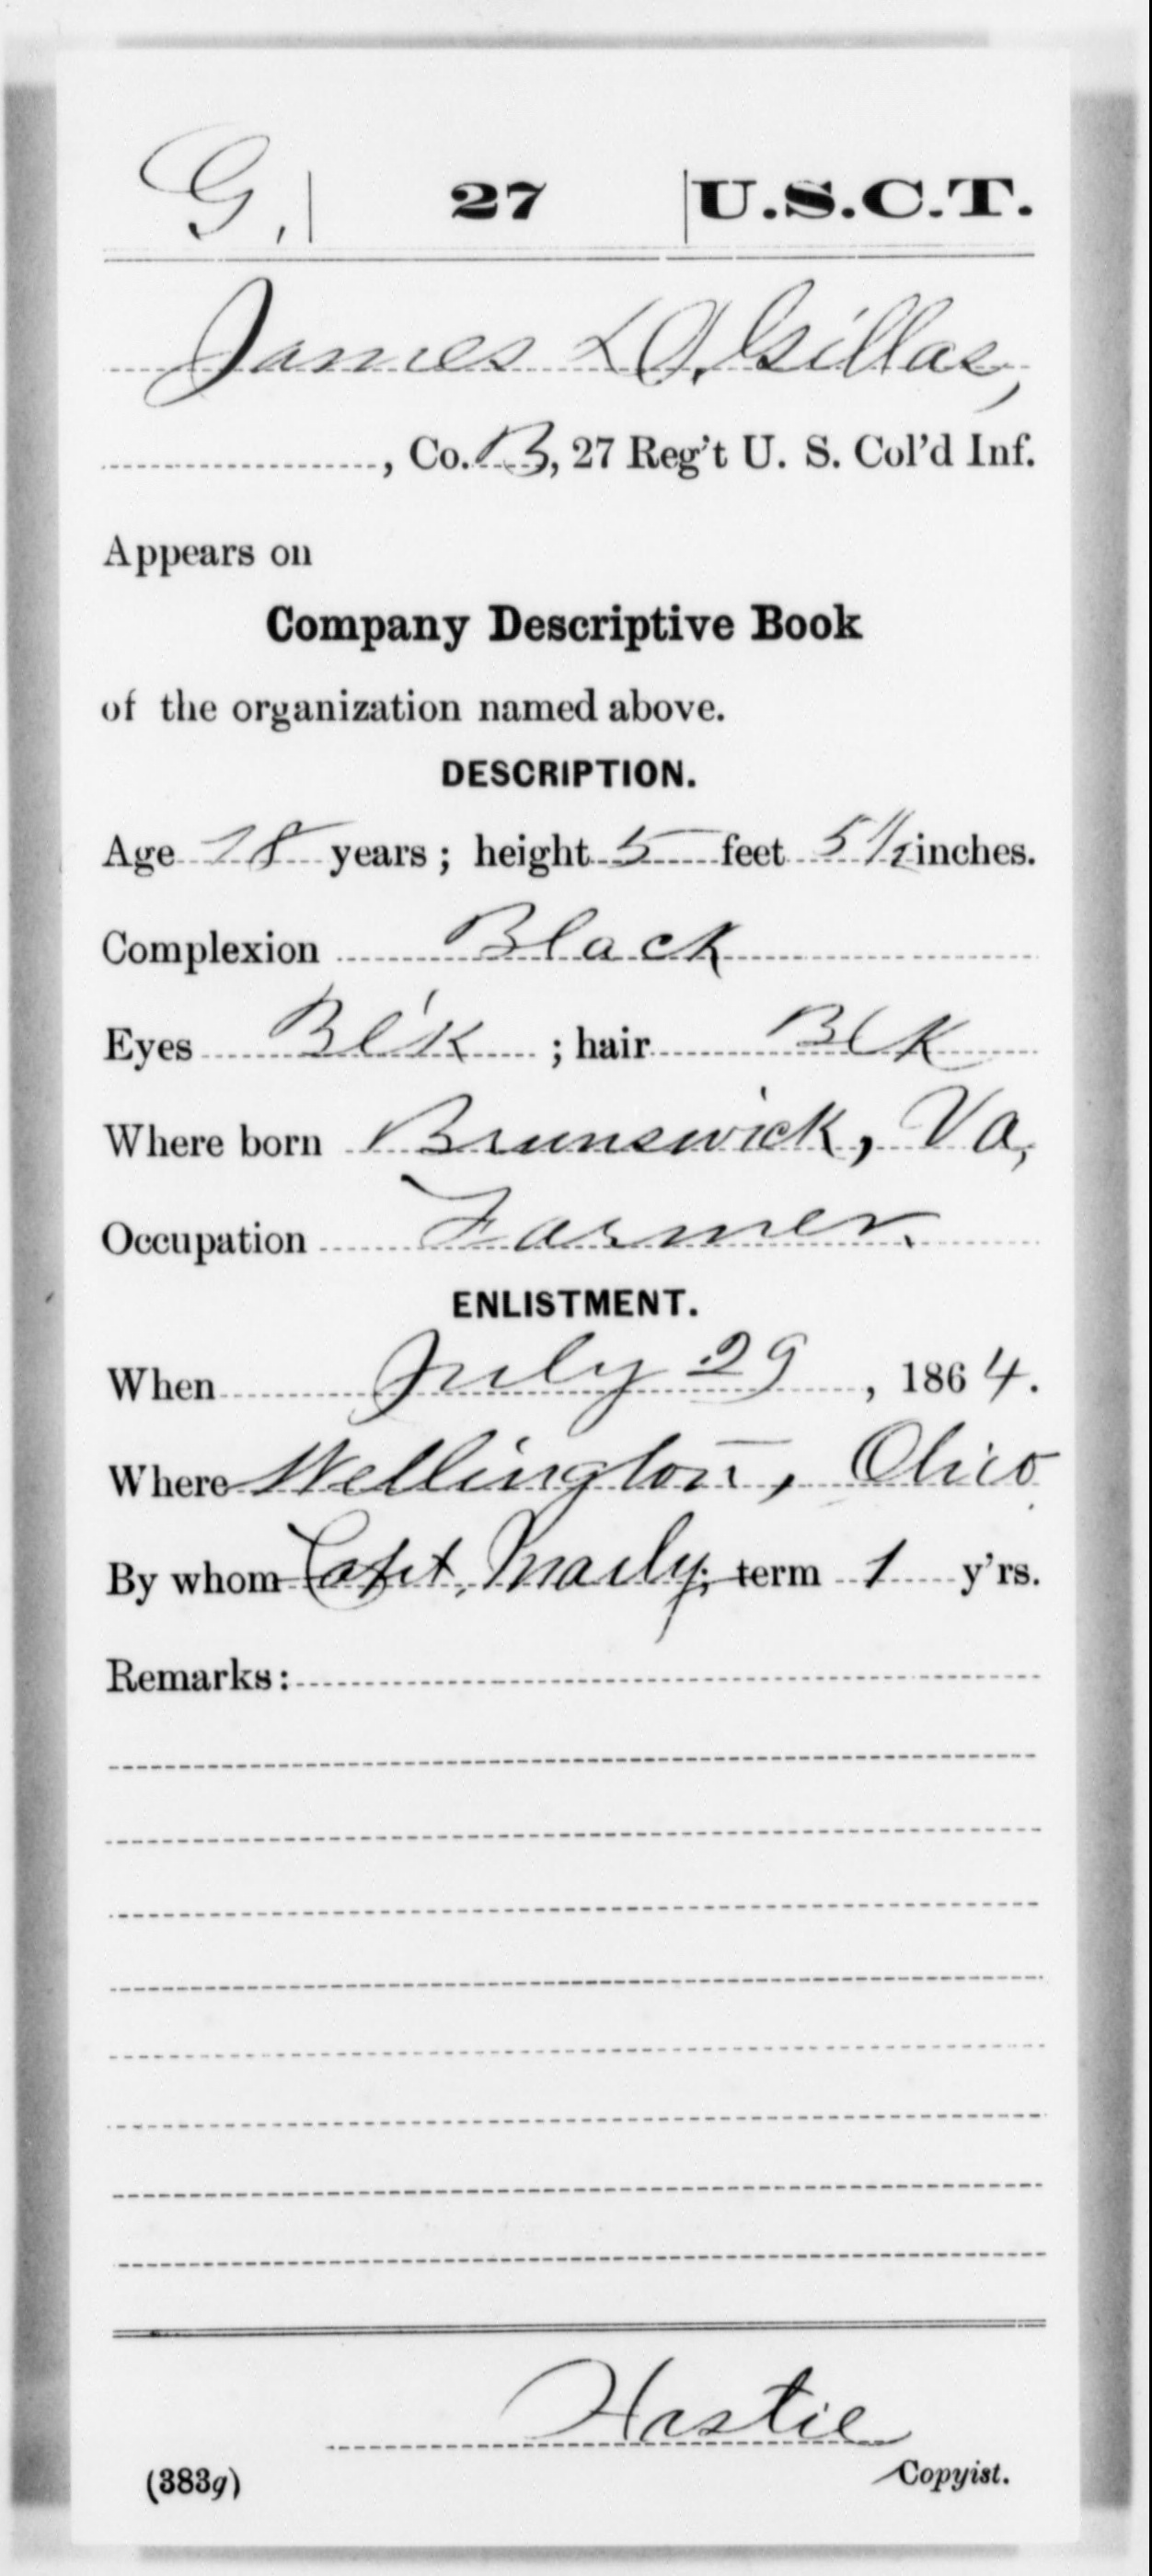 G. | 27 | U.S.C.T.
James D. Gillas,
, Co. B, 27 Reg't U. S. Col'd Inf.
Appears on
Company Descriptive Book
of the organization named above.
DESCRIPTION.
Age 18 years; height 5 feet 5 1/2 inches.
Complexion Black
Eyes Bl'k; hair Blk
Where born Brunswick, Va,
Occupation Farmer
ENLISTMENT.
When July 29, 1864.
Where Wellington, Ohio
By whom Capt. term 1 y'rs.
Remarks:
Hastie
(383g) Copyist.